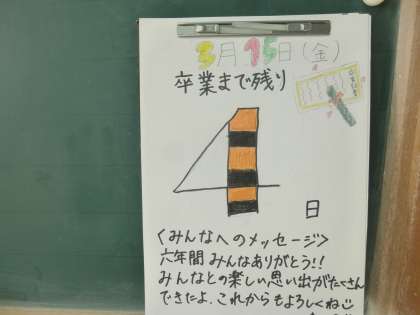 3月15日(金)
卒業まで残り
4日
〈みんなへのメッセージ〉
六年間 みんなありがとう!!
みんなとの楽しい思い出がたくさん
できたよ。これからもよろしくね